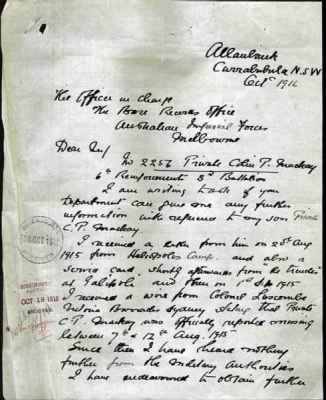 Allanbank
Currabubula N.S.W
Oct 1916
The Officer in Charge
The Base Records Office
Australian Imperial Forces
Melbourne
Dear Sir/
No 2256 Private Colin P. Mackay
6th Reinforcements 3rd Battalion
I am writing to ask if your
Department can give me any further
information with reference to my son Private
C.P. Mackay.
I received a letter from him on 25th Aug
1915 from Heliopolis Camp. and also a
service card, shortly afterwards from the trenches
at Gallipoli and then on 1st Sep 1915
I received a wire from Colonel Luscombe
Victoria Barracks Sydney stating that Private
C.P. Mackay was officially reported missing
between 7th & 12th Aug. 1915
Since then I have heard nothing
further from the Military Authorities
I have endeavoured to obtain further
OCT 18 1916